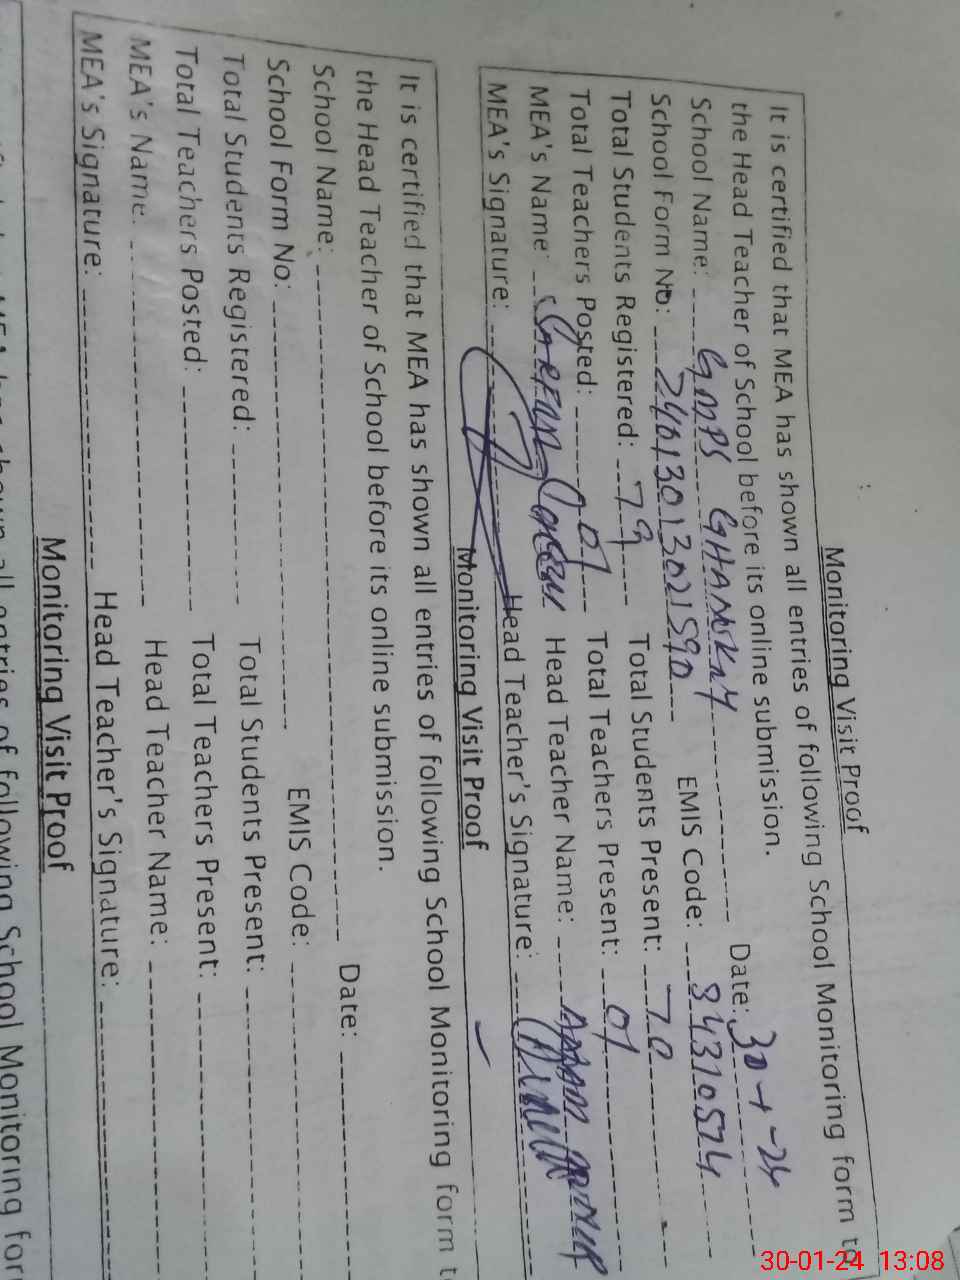 Monitoring Visit Proof
It is certified that MEA has shown all entries of following School Monitoring form to
the Head Teacher of School before its online submission.
School Name: GMPS Date: 30-1-24
School Form No: 24013013021590 EMIS Code: 84310574
Total Students Registered: 79 Total Students Present: 70
Total Teachers Posted: 01 Total Teachers Present: 01
MEA's Name: Head Teacher Name:
MEA's Signature: Head Teacher's Signature:
Monitoring Visit Proof
It is certified that MEA has shown all entries of following School Monitoring form t
the Head Teacher of School before its online submission.
School Name: Date:
School Form No: EMIS Code:
Total Students Registered: Total Students Present:
Total Teachers Posted: Total Teachers Present:
MEA's Name: Head Teacher Name:
MEA's Signature: Head Teacher's Signature:
Monitoring Visit Proof
MEA has shown all entries of following School Monitoring for
30-01-24 13:08